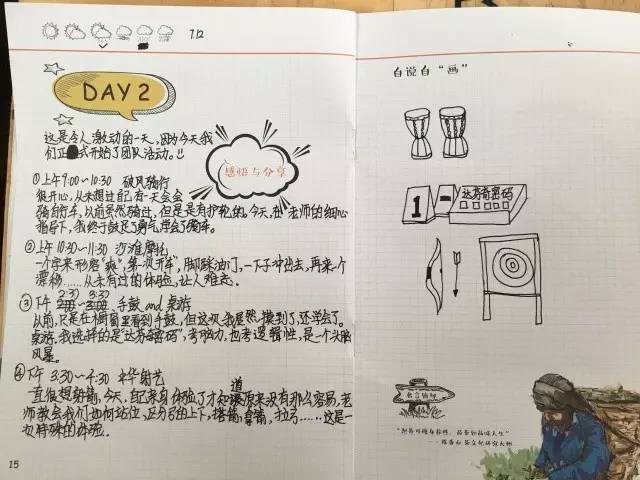 7.12
DAY 2
这是令人激动的一天,因为今天我
们正式开始了团队活动。!!
感悟与分享
①上午9:00~10:30 破风骑行
很开心,从未想过自己有一天会会
骑自行车,以前虽然骑过,但是是有护轮的。今天,在老师的细心
指导下,我终于鼓足了勇气,学会了骑车。
②上午10:30~11:30 沙滩摩托
一个字来形容"爽",第一次开车,脚踩油门,一下子冲出去,再来个
漂移……从未有过的体验,让人难忘。
2:30 3:30
③下午 手鼓 and 桌游
以前,只是在橱窗里看到手鼓,但这次我居然摸到了,还学会了。
桌游,我选择的是"达芬奇密码",考脑力,也考逻辑性,是一个头脑
风暴。
④下午 3:30~4:30 射艺
道
一直很想射箭,今天,自己亲身体验了才知原来没有那么容易,老
师教会我们如何站位,区分弓的上下,搭箭,拿箭,拉弓……这是一
次特殊的体验。
15
自说自"画"
1
-
达芬奇密码
名言锦旗